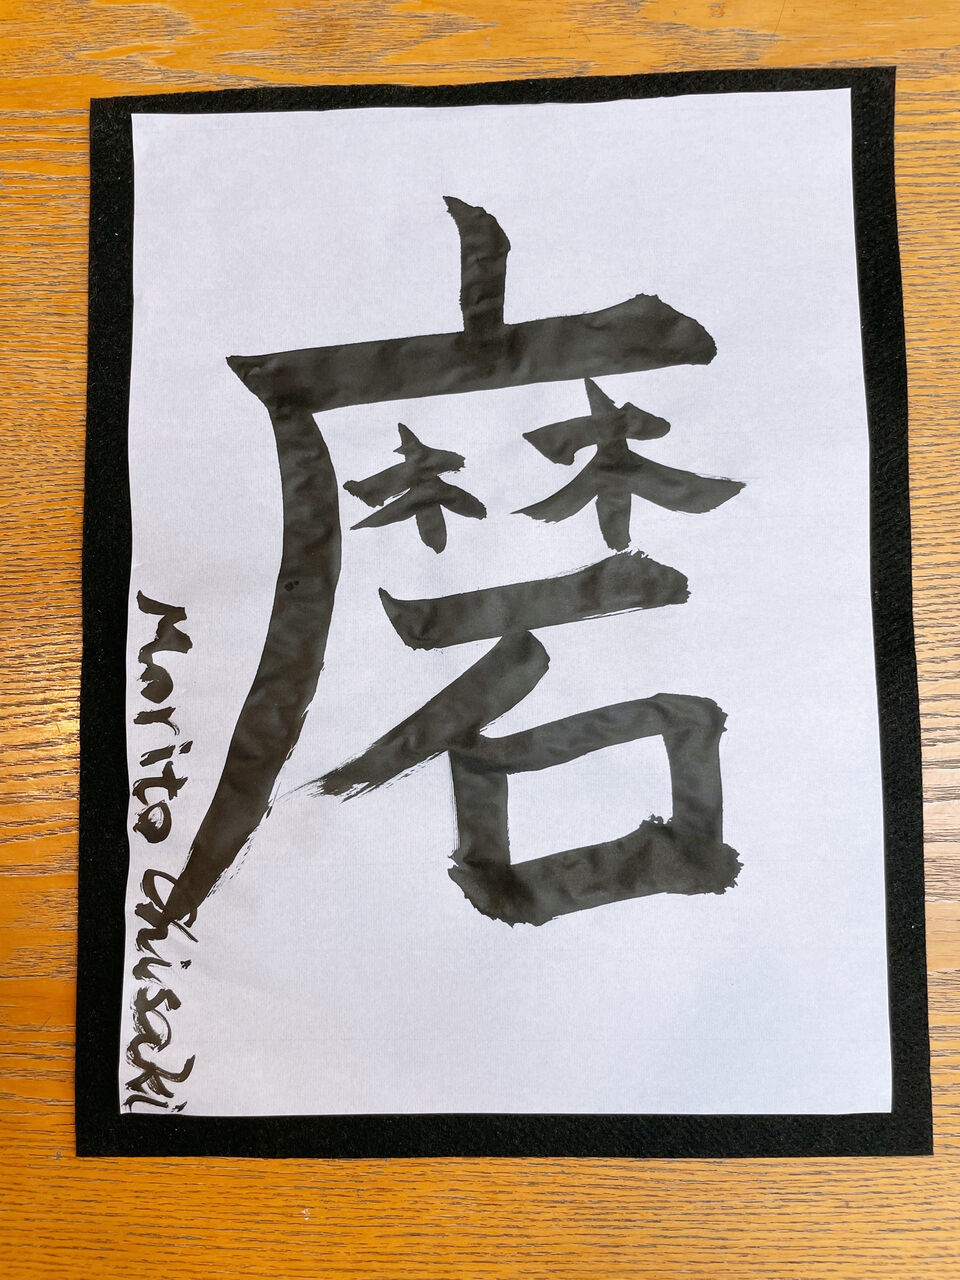 磨
Morito Chisaki